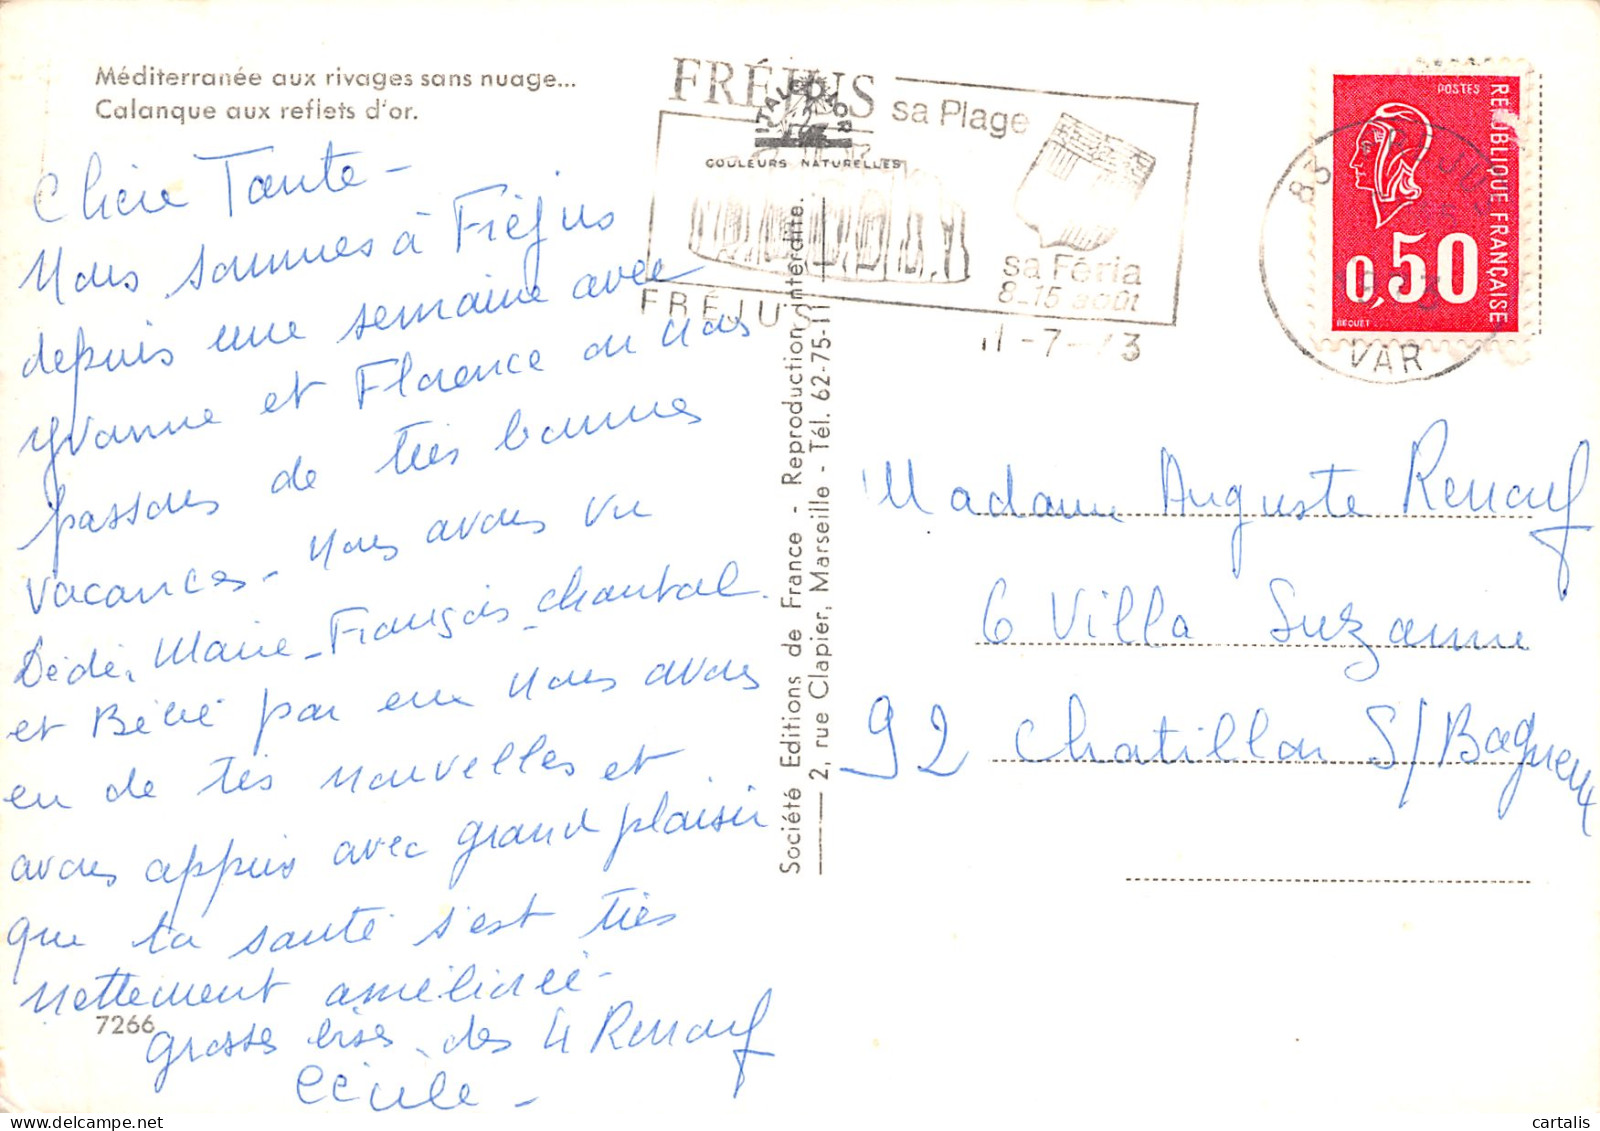 Méditerranée aux rivages sans nuage...
Calanque aux reflets d'or.
Chère Tante -
Nous sommes à Fréjus
depuis une semaine avec
Yvonne et Florence où nous
passons de très bonnes
vacances - nous avons vu
Dédé, Marie - François - Chantal
et Bébé par eux nous avons
eu de tes nouvelles et
avons appris avec grand plaisir
que ta santé s'est très
nettement améliorée -
7266
grosses bises des 4 Renouf
Cécile -
FRÉJUS
sa Plage
ITALCOLOR
COULEURS NATURELLES
sa Féria
8_15 août
FRÉJUS
11-7-73
Société Editions de France - Reproduction interdite.
2, rue Clapier, Marseille - Tél. 62-75-11
POSTES
RÉPUBLIQUE FRANÇAISE
0,50
BEQUET
83
VAR
Madame Auguste Renouf
6 Villa Suzanne
92 Chatillon S/Bagneux
cartalis.com